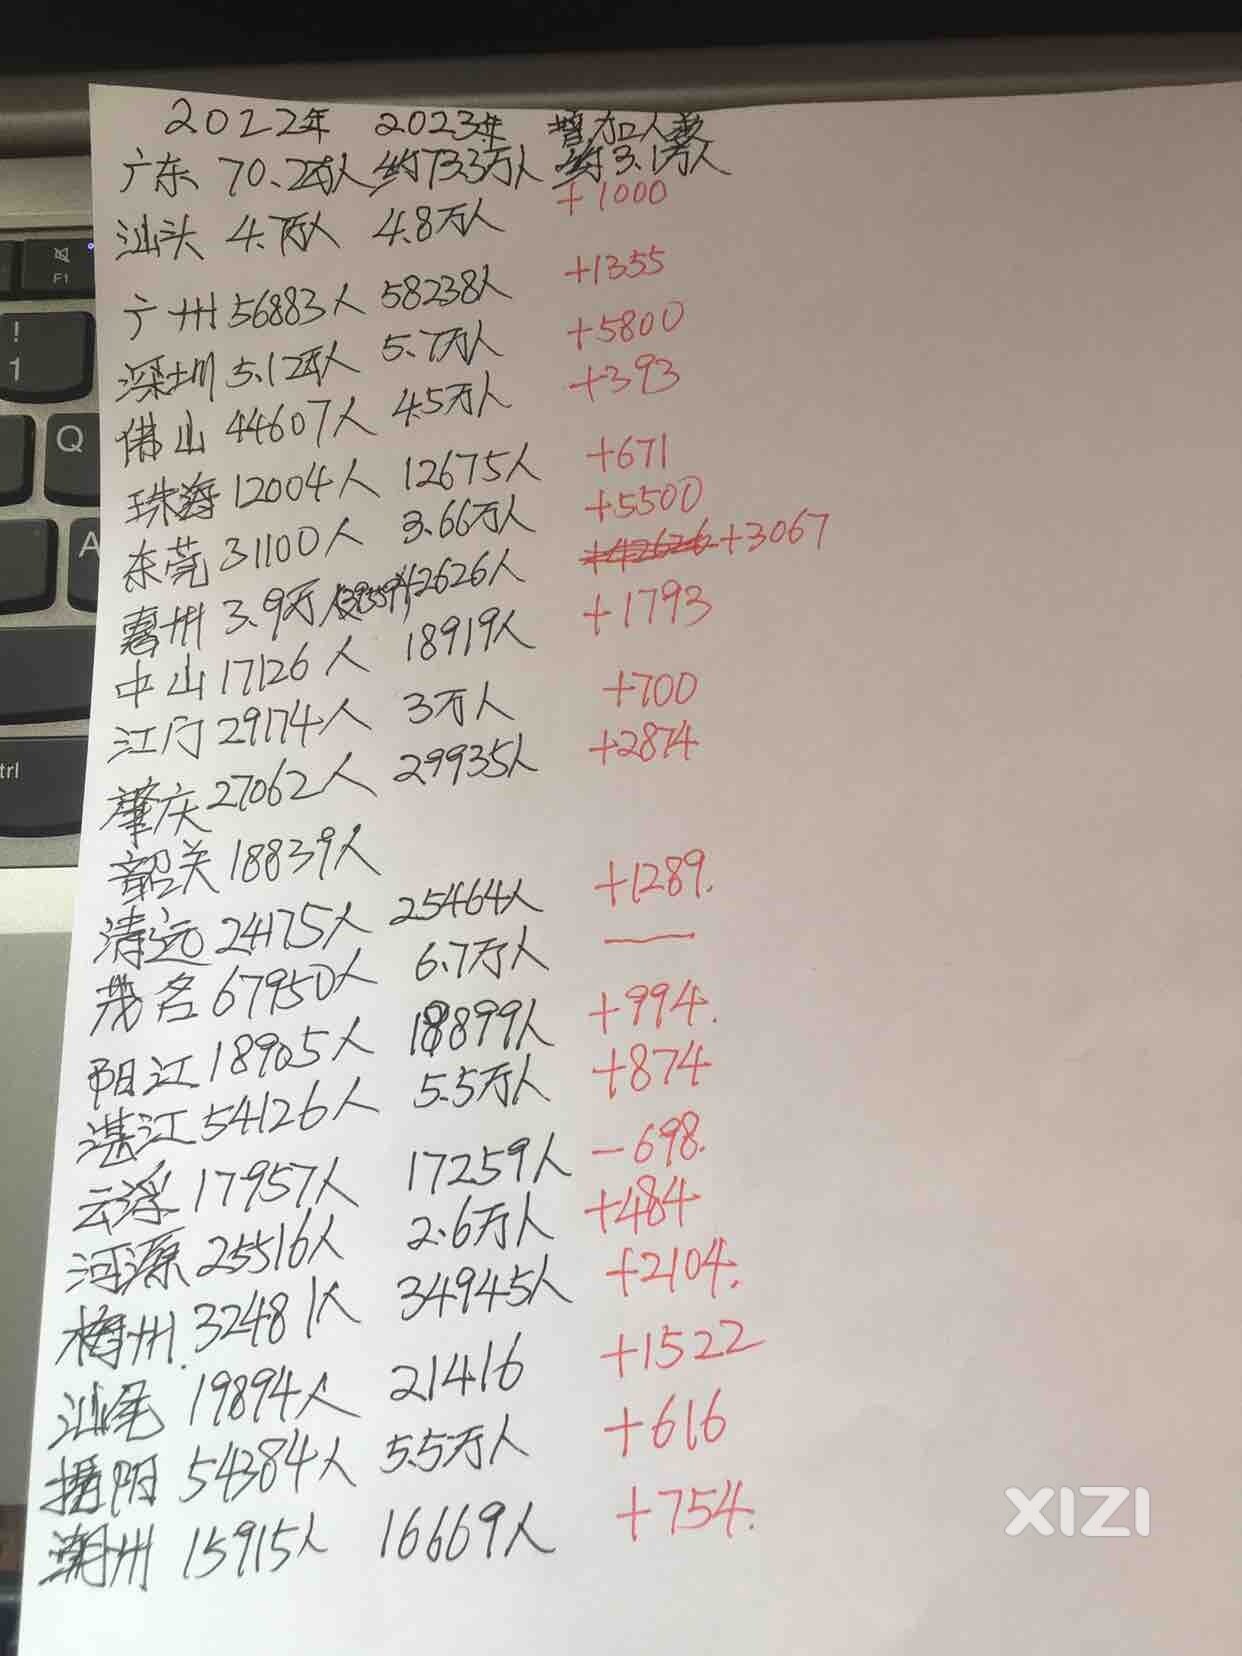 2022年 2023年 增加人数
广东 70.2万人 约73.3万人 约3.1万人
汕头 4.7万人 4.8万人 +1000
广州 56883人 58238人 +1355
深圳 5.12万人 5.7万人 +5800
佛山 44607人 4.5万人 +393
珠海 12004人 12675人 +671
东莞 31100人 3.66万人 +5500
惠州 3.9万人(39559) 42626人 +42626 +3067
中山 17126人 18919人 +1793
江门 29174人 3万人 +700
肇庆 27062人 29935人 +2874
韶关 18839人
清远 24175人 25464人 +1289.
茂名 67950人 6.7万人 —
阳江 18905人 18899人 +994.
湛江 54126人 5.5万人 +874
云浮 17957人 17259人 -698.
河源 25516人 2.6万人 +484
梅州. 32481人 34945人 +2104.
汕尾 19894人 21416 +1522
揭阳 54384人 5.5万人 +616
潮州 15915人 16669人 +754.
XIZI
F1
!
1
Q
A
trl